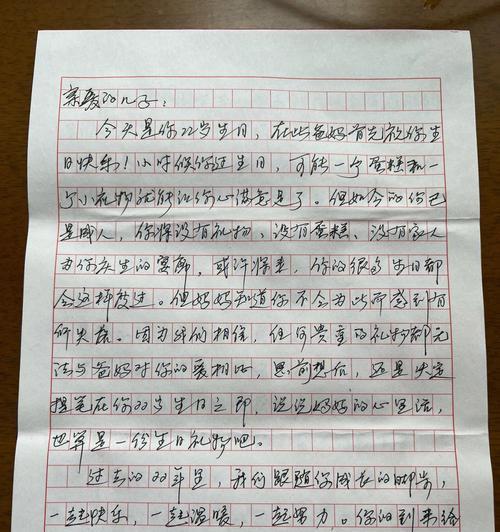 亲爱的儿子：
今天是你22岁生日，在此爸妈首先祝你生
日快乐！小时候你过生日，可能一个蛋糕和一
个小礼物就能让你心满意足了。但如今的你已
是成人，你将没有礼物、没有蛋糕、没有家人
为你庆生的，或许将来，你的很多生日都
会这样度过。但妈妈知道你不会为此而感到有
所失落。因为我们相信，任何贵重的礼物都无
法与爸妈对你的爱相比，思前想后，还是决定
提笔在你22岁生日之即，说说妈妈的心里话，
也算是一份生日礼物吧。
过去的22年里，我们跟随你成长的脚步，
一起快乐，一起温暖，一起努力。你的到来给